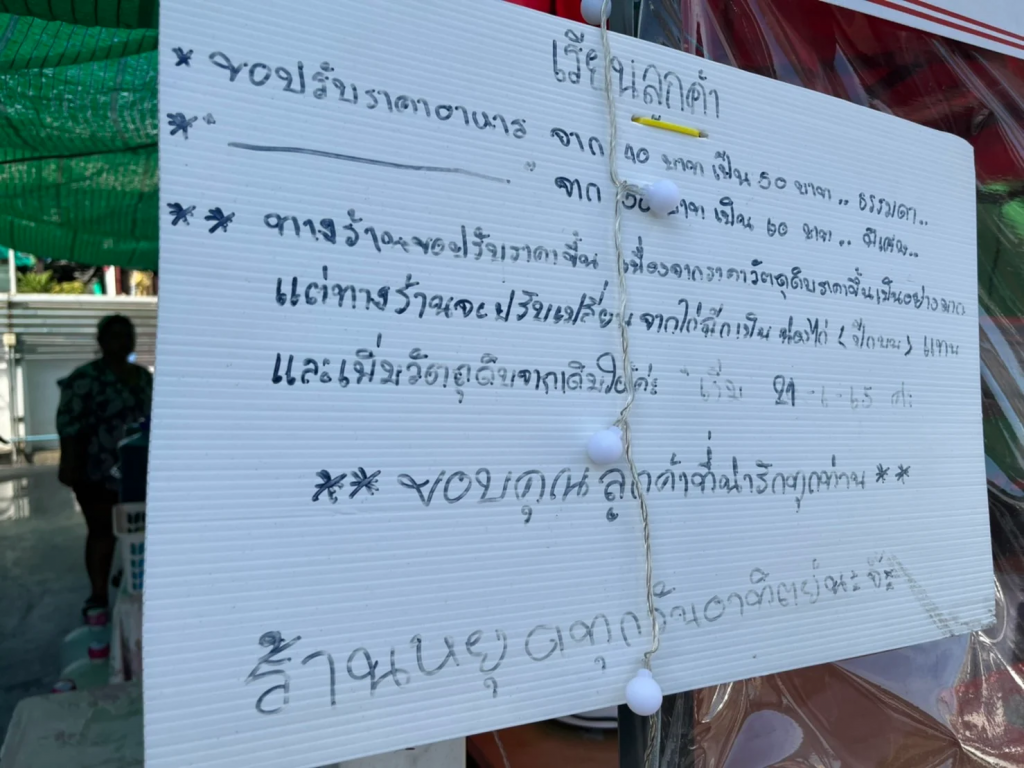 เรียนลูกค้า
* ขอปรับราคาอาหาร จาก 40 บาท เป็น 50 บาท.. ธรรมดา..
* " ———— " จาก 50 บาท เป็น 60 บาท.. พิเศษ..
** ทางร้านขอปรับราคาขึ้น เนื่องจากราคาวัตถุดิบราคาขึ้นเป็นอย่างมาก
แต่ทางร้านจะปรับเปลี่ยนจากไก่ฉีกเป็น น่องไก่ (ปีกบน) แทน
และเพิ่มวัตถุดิบจากเดิมให้ค่ะ เริ่ม 21-1-65 ค่ะ
** ขอบคุณลูกค้าที่น่ารักทุกท่าน **
ร้านหยุดทุกวันอาทิตย์นะจ๊ะ